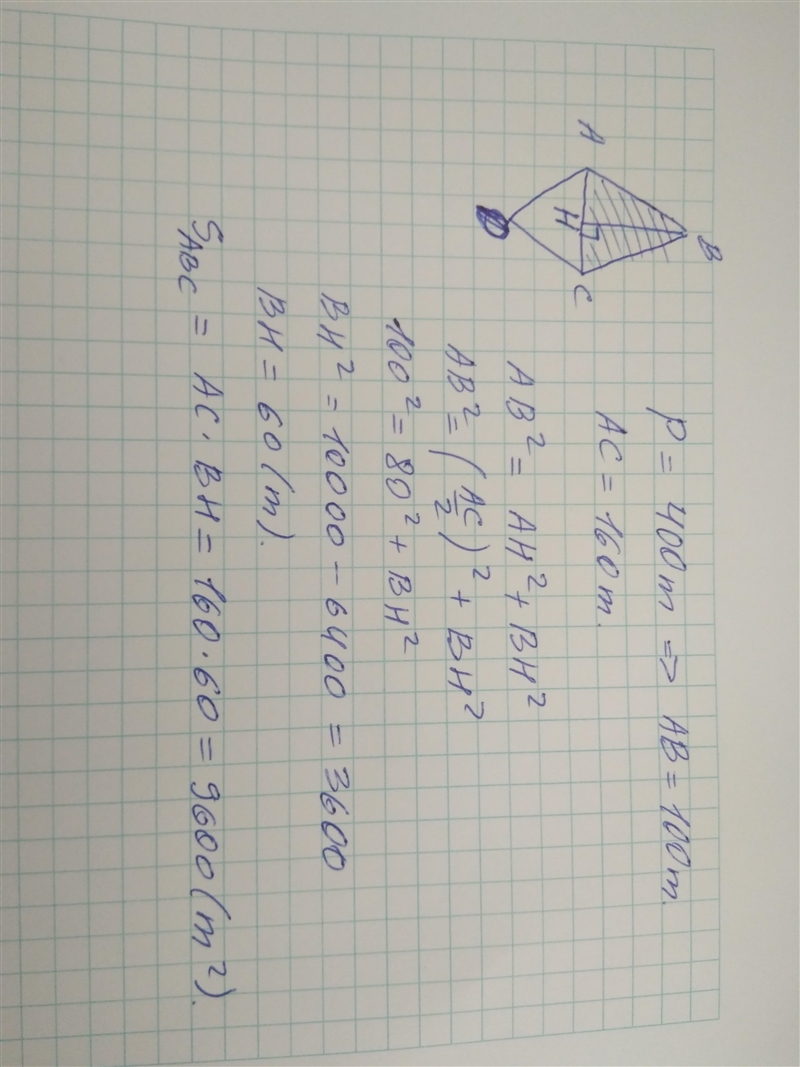 B
A
H
C
D
P = 400m => AB = 100m.
AC = 160m.
AB² = AH² + BH²
AB² = (AC/2)² + BH²
100² = 80² + BH²
BH² = 10000 - 6400 = 3600
BH = 60 (m).
S_ABC = AC · BH = 160 · 60 = 9600 (m²).